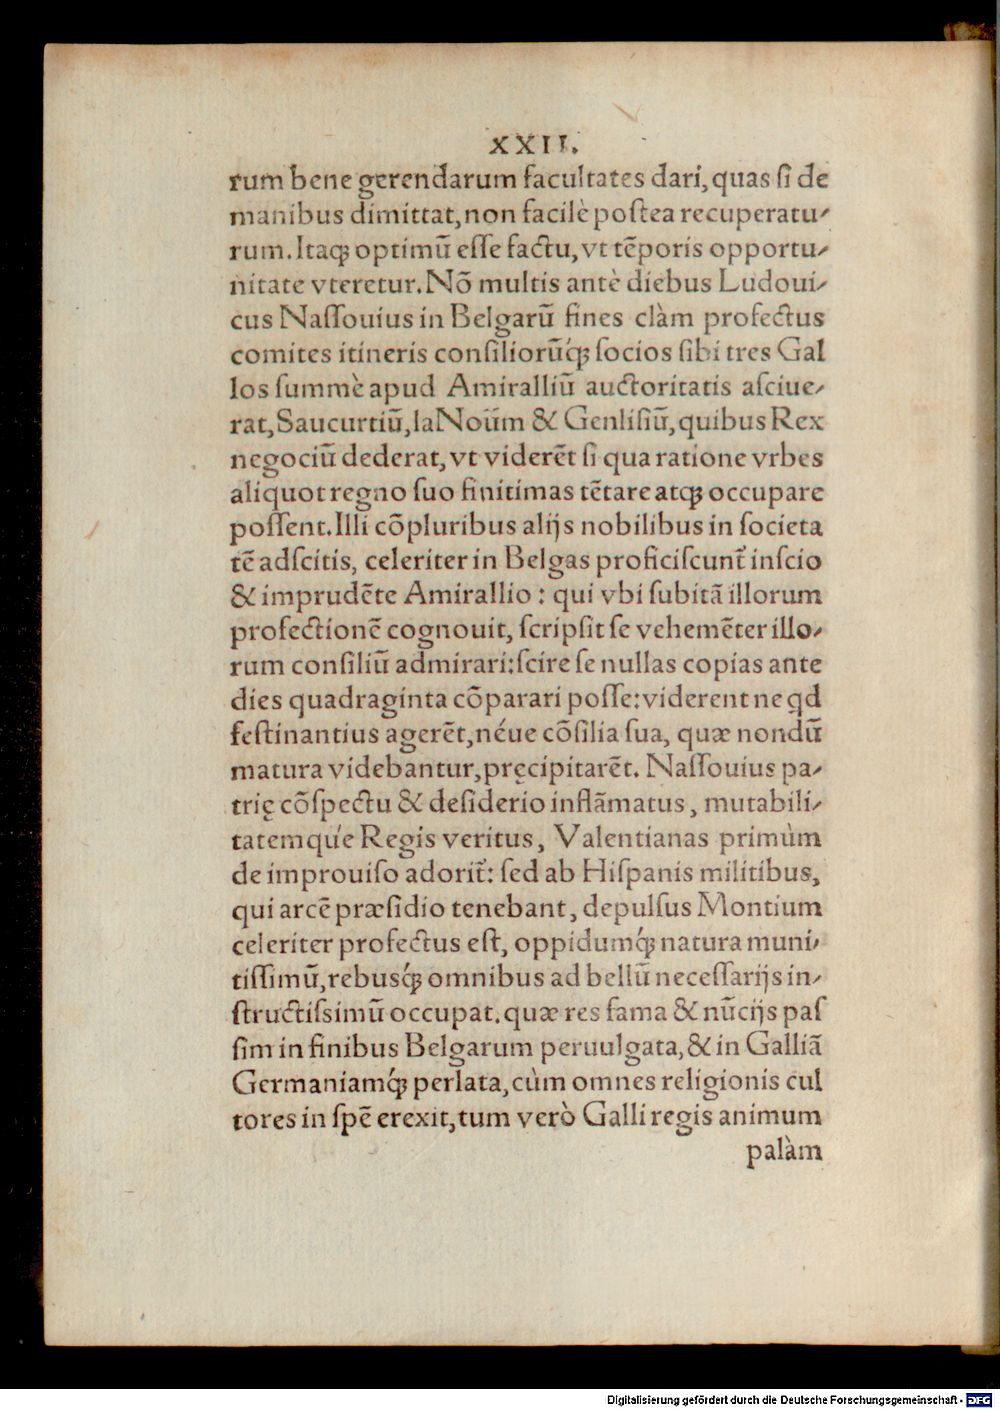 XXII.
rum bene gerendarum facultates dari, quas ſi de
manibus dimittat, non facilè poſtea recuperatu-
rum. Itaq; optimũ eſſe factu, vt tẽporis opportu-
nitate vteretur. Nõ multis antè diebus Ludoui-
cus Naſſouius in Belgarũ fines clàm profectus
comites itineris conſiliorũq́; ſocios ſibi tres Gal
los ſummè apud Amiralliũ auctoritatis aſciue-
rat, Saucurtiũ, la Noüm & Genliſiũ, quibus Rex
negociũ dederat, vt viderẽt ſi qua ratione vrbes
aliquot regno ſuo finitimas tẽtare atq; occupare
poſſent. Illi cõpluribus alijs nobilibus in ſocieta
tẽ adſcitis, celeriter in Belgas proficiſcunt̃ inſcio
& imprudẽte Amirallio : qui vbi ſubitã illorum
profectionẽ cognouit, ſcripſit ſe vehemẽter illo-
rum conſiliũ admirari: ſcire ſe nullas copias ante
dies quadraginta cõparari poſſe: viderent ne qd
feſtinantius agerẽt, néue cõſilia ſua, quæ nondũ
matura videbantur, pręcipitarẽt. Naſſouius pa-
trię cõſpectu & deſiderio inflãmatus, mutabili-
tatemqúe Regis veritus, Valentianas primùm
de improuiſo adorit̃: ſed ab Hiſpanis militibus,
qui arcẽ præſidio tenebant, depulſus Montium
celeriter profectus eſt, oppidumq́; natura muni-
tiſſimũ, rebusq́; omnibus ad bellũ neceſſarijs in-
ſtructiſsimũ occupat. quæ res fama & nũcijs paſ
ſim in finibus Belgarum peruulgata, & in Galliã
Germaniamq́; perlata, cùm omnes religionis cul
tores in ſpẽ erexit, tum verò Galli regis animum
palàm
Digitalisierung gefördert durch die Deutsche Forschungsgemeinschaft - DFG